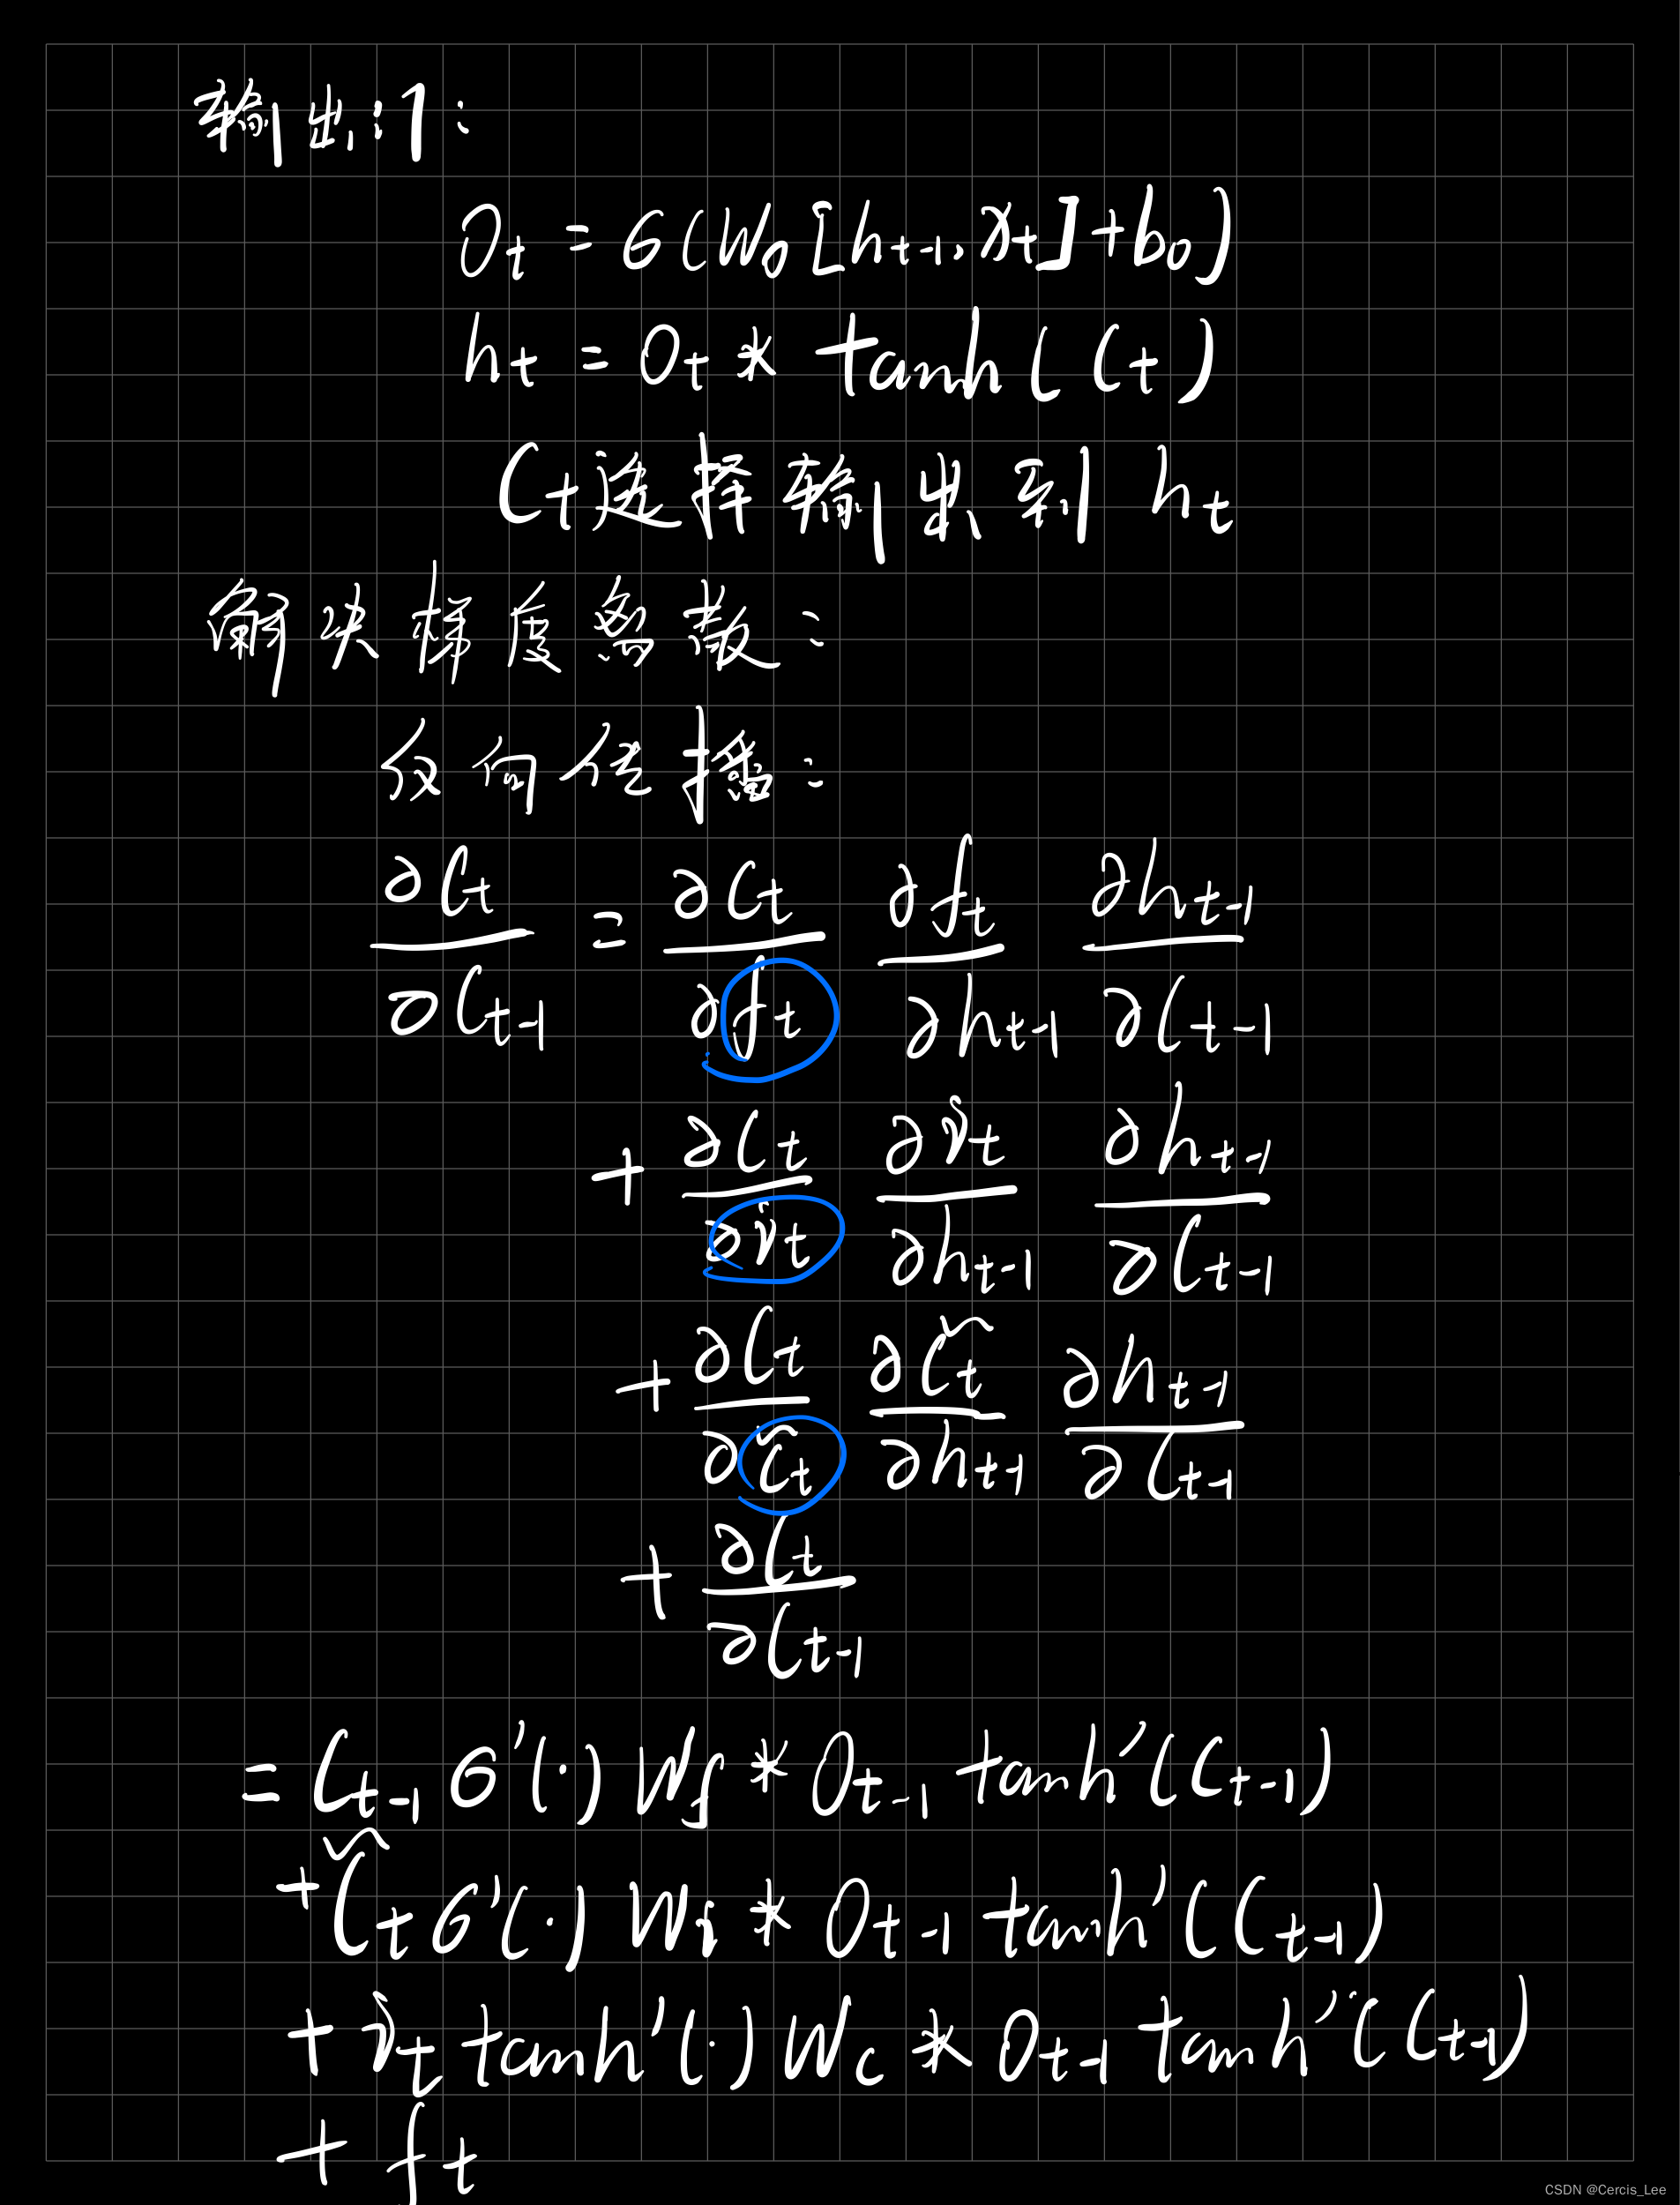 输出门:
O_t = σ(W_o[h_{t-1}, x_t] + b_o)
h_t = O_t * tanh(C_t)
C_t选择输出到 h_t
解决梯度弥散:
反向传播:
∂C_t/∂C_{t-1} = ∂C_t/∂f_t ∂f_t/∂h_{t-1} ∂h_{t-1}/∂C_{t-1}
+ ∂C_t/∂i_t ∂i_t/∂h_{t-1} ∂h_{t-1}/∂C_{t-1}
+ ∂C_t/∂C̃_t ∂C̃_t/∂h_{t-1} ∂h_{t-1}/∂C_{t-1}
+ ∂C_t/∂C_{t-1}
= C_{t-1} σ'(·) W_f * O_{t-1} tanh'(C_{t-1})
+ C̃_t σ'(·) W_i * O_{t-1} tanh'(C_{t-1})
+ i_t tanh'(·) W_c * O_{t-1} tanh'(C_{t-1})
+ f_t
CSDN @Cercis_Lee